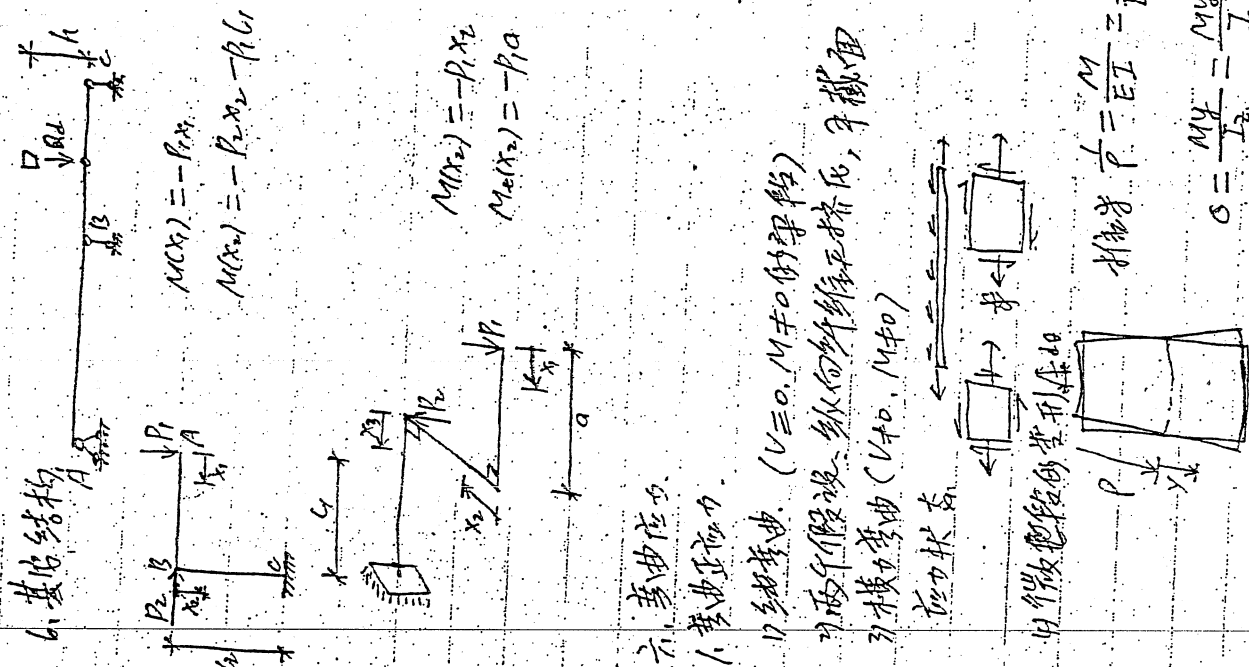 6. 基本结构
A
B
D
Qd
C
h
P₂
B
P₁
A
x₂
x₁
C
M(x₁) = -P₁x₁
M(x₂) = -P₂x₂ - P₁l₁
x₃
P₂
x₂
P₁
x₁
a
M(x₂) = -P₁x₂
M(x₂) = -P₁a
六、弯曲应力.
1. 弯曲正应力.
1) 纯弯曲. (V≡0. M≠0的梁段)
2) 两个假设、纵向纤维无挤压, 平截面
3) 横力弯曲 (V≠0. M≠0)
应力状态
4) 微梁段的变形 dθ
ρ
y
1/ρ = M/EI =
σ = My/I_z =